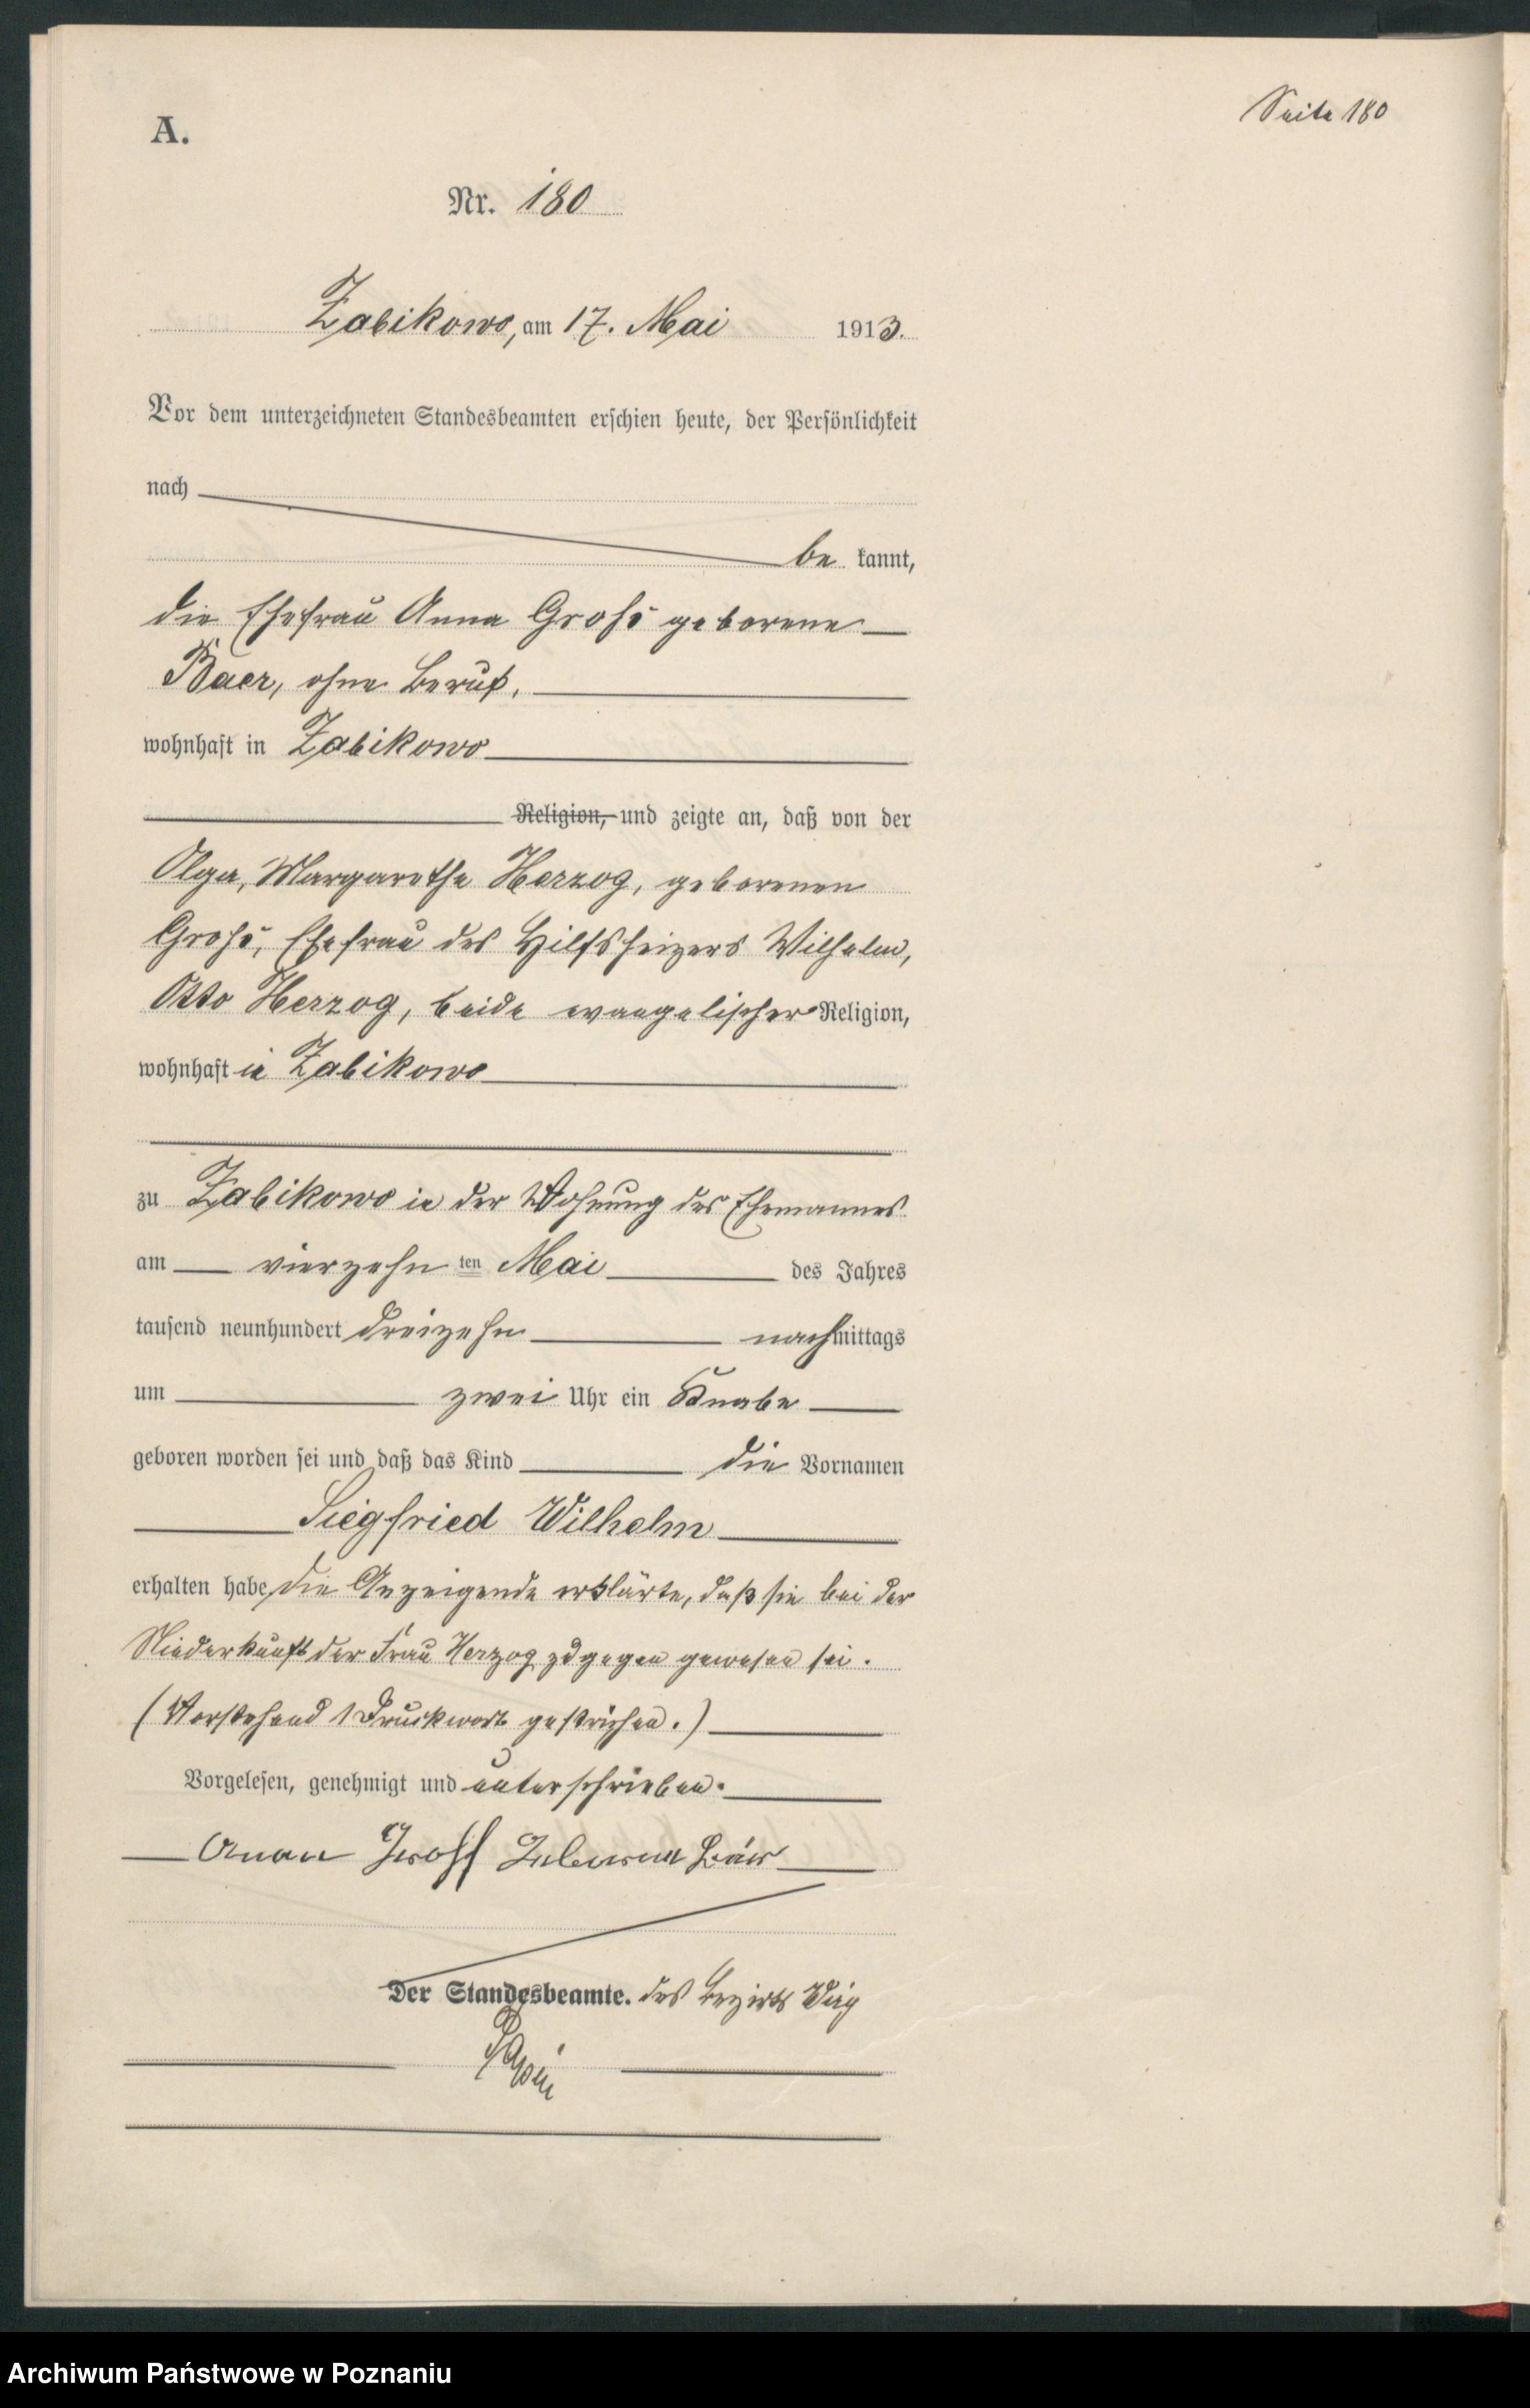 Seite 180
A.
Nr. 180
Zabikowo, am 17. Mai 1913.
Vor dem unterzeichneten Standesbeamten erschien heute, der Persönlichkeit
nach
be kannt,
die Ehefrau Anna Groß geborene
Baer, ohne Beruf,
wohnhaft in Zabikowo
Religion, und zeigte an, daß von der
Olga, Margarethe Herzog, geborenen
Groß, Ehefrau des Hilfsheizers Wilhelm,
Otto Herzog, beide evangelischer Religion,
wohnhaft in Zabikowo
zu Zabikowo in der Wohnung des Ehemannes
am vierzehn ten Mai des Jahres
tausend neunhundert dreizehn nachmittags
um zwei Uhr ein Knabe
geboren worden sei und daß das Kind die Vornamen
Siegfried Wilhelm
erhalten habe, die Anzeigende erklärte, daß sie bei der
Niederkunft der Frau Herzog zugegen gewesen sei.
(Vorstehend 1 Druckwort gestrichen.)
Vorgelesen, genehmigt und unterschrieben.
Anna Groß Geborene Bär
Der Standesbeamte. des Bezirks
Archiwum Państwowe w Poznaniu